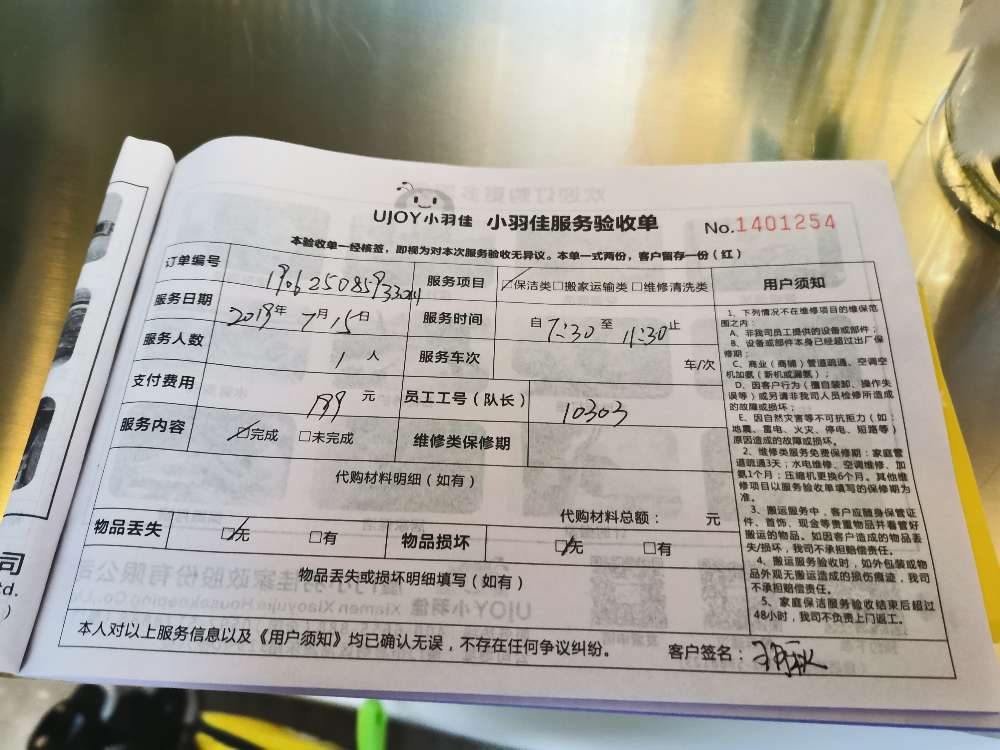 UJOY小羽佳 小羽佳服务验收单 No.1401254
本验收单一经核签，即视为对本次服务验收无异议。本单一式两份，客户留存一份（红）
订单编号 服务项目 保洁类 搬家运输类 维修清洗类
服务日期 2019年 7月15日 服务时间 自 7:30 至 11:30 止
服务人数 1 人 服务车次 车/次
支付费用 元 员工工号（队长） 10303
服务内容 完成 未完成 维修类保修期
代购材料明细（如有）
代购材料总额： 元
物品丢失 无 有 物品损坏 无 有
物品丢失或损坏明细填写（如有）
用户须知
1、下列情况不在维修项目的维保范
围之内：
A、非我司员工提供的设备或部件；
B、设备或部件本身已经超过出厂保
修期；
C、商业（商铺）管道疏通、空调空
机加氨（新机或漏氨）；
D、因客户行为（擅自装卸、操作失
误等）或另请非我司人员检修所造成
的故障或损坏；
E、因自然灾害等不可抗拒力（如：
地震、雷电、火灾、停电、短路等）
原因造成的故障或损坏。
2、维修类服务免费保修期：家庭管
道疏通3天；水电维修、空调维修、加
氨1个月；压缩机更换6个月。其他维
修项目以服务验收单填写的保修期为
准。
3、搬运服务中，客户应随身保管证
件、首饰、现金等贵重物品并看管好
搬运的物品。如因客户造成的物品丢
失/损坏，我司不承担赔偿责任。
4、搬运服务验收时，如外包装或物
品外观无搬运造成的损伤痕迹，我司
不承担赔偿责任。
5、家庭保洁服务验收结束后超过
48小时，我司不负责上门返工。
本人对以上服务信息以及《用户须知》均已确认无误，不存在任何争议纠纷。 客户签名：
司
td.
)